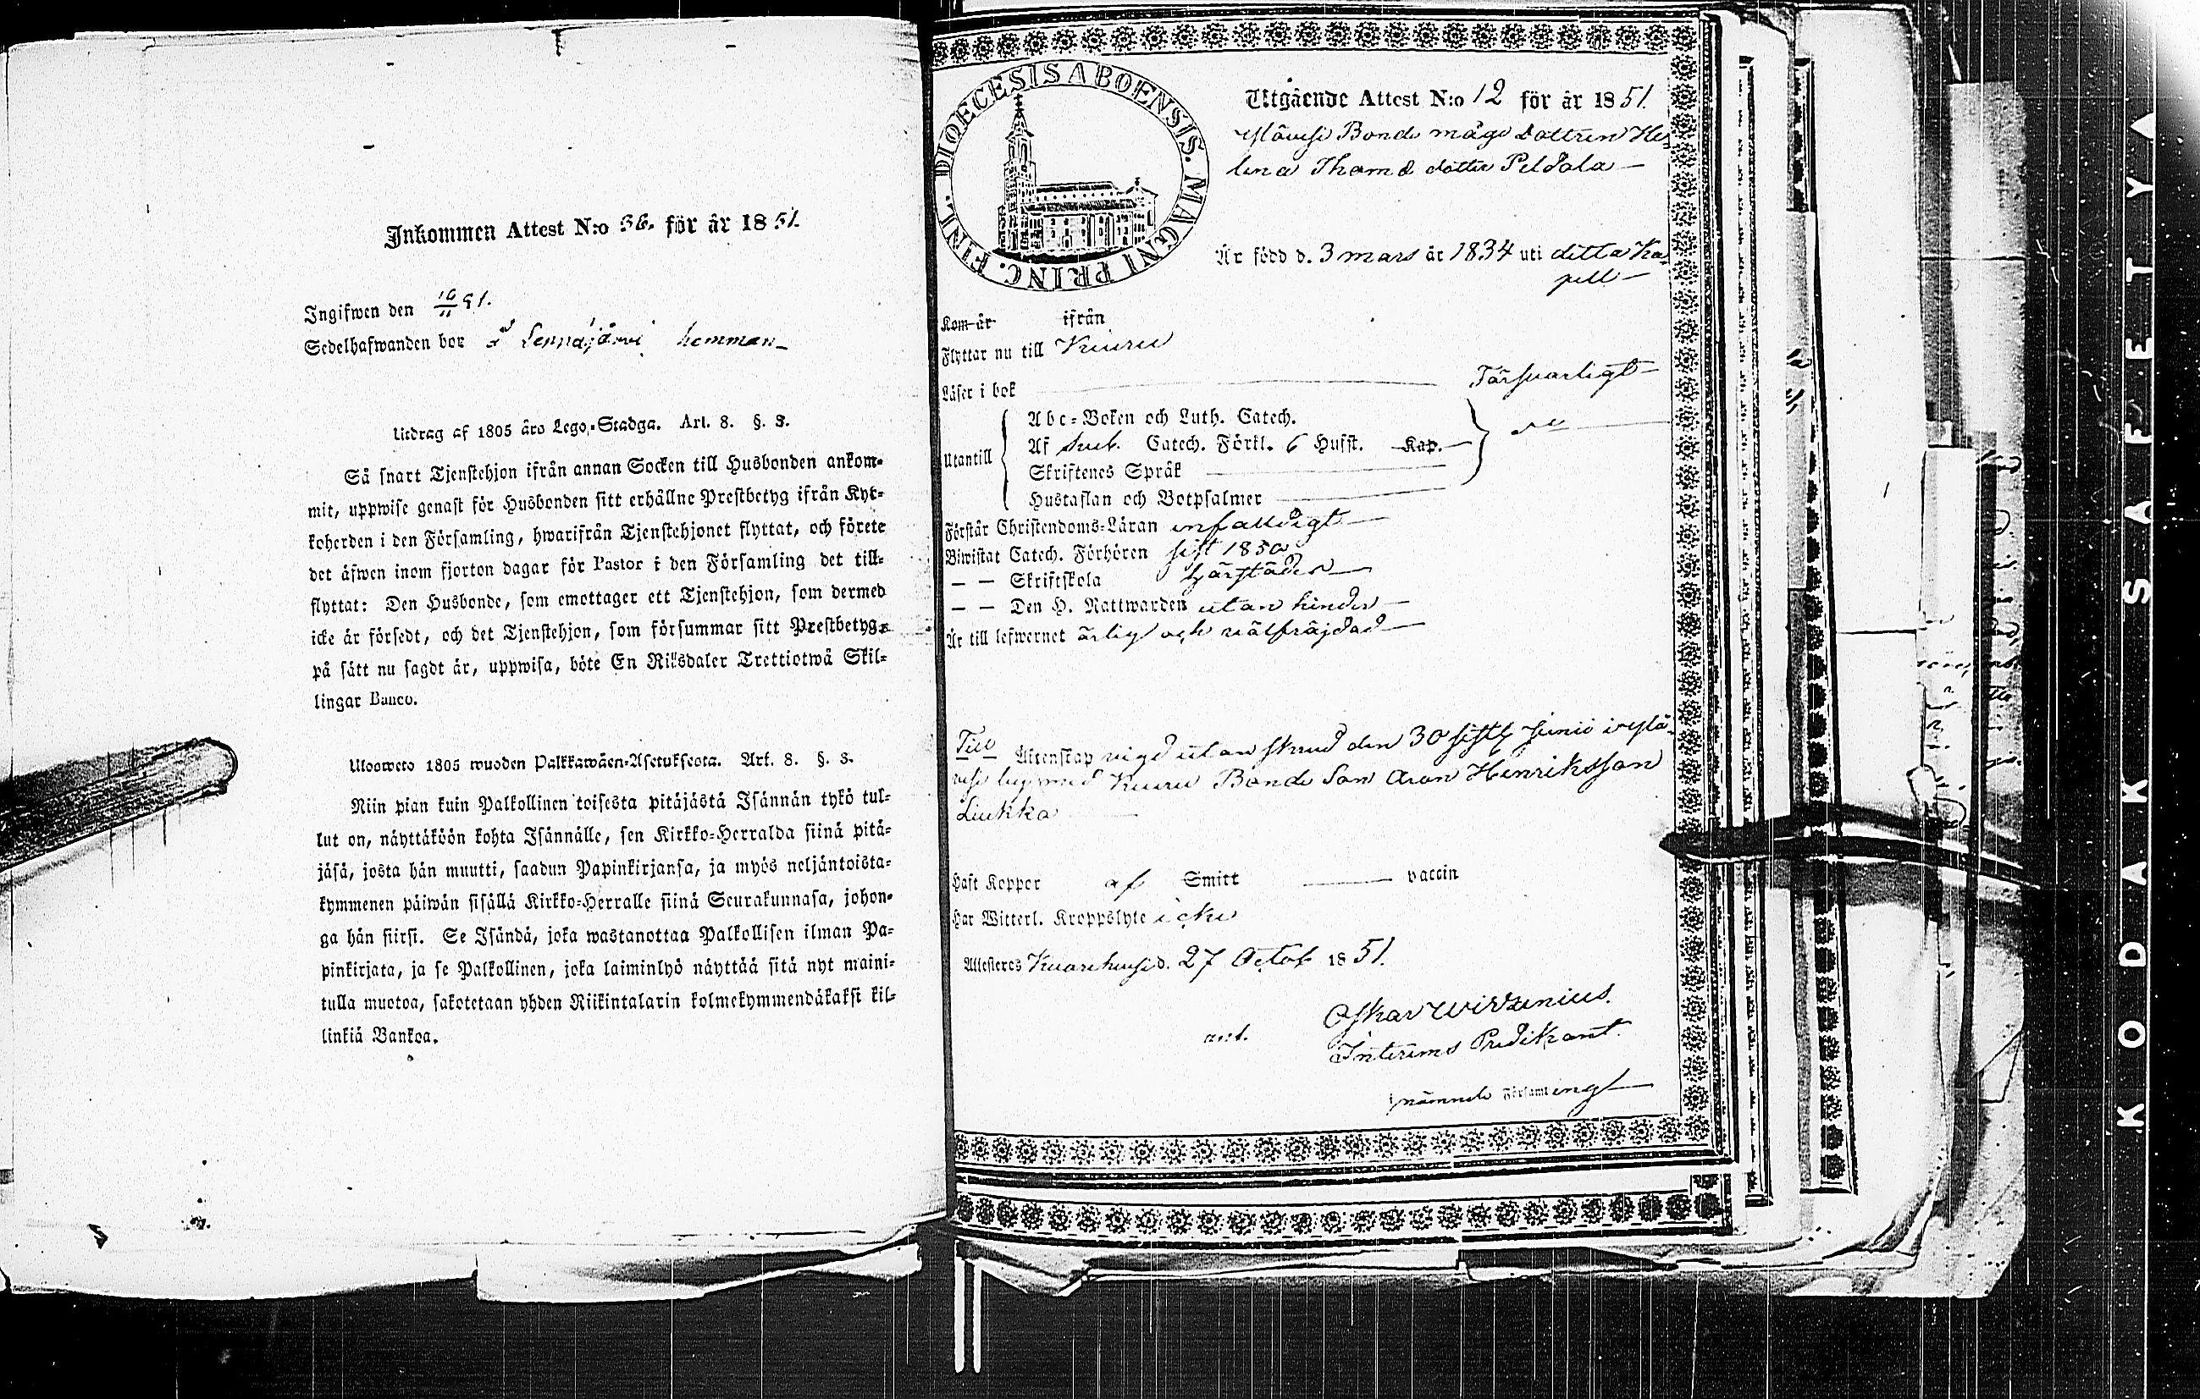 Inkommen Attest N:o 36. för år 1851.
Ingifwen den 16/11 51.
Sedelhafwanden bor å Sennäjärvi hemman
Utdrag af 1805 års Lego-Stadga. Art. 8. §. 3.
Så snart Tjenstehjon ifrån annan Socken till Husbonden ankom-
mit, uppwise genast för Husbonden sitt erhållne Prestbetyg ifrån Kyr-
koherden i den Församling, hwarifrån Tjenstehjonet flyttat, och förete
det äfwen inom fjorton dagar för Pastor i den Församling det till-
flyttat: Den Husbonde, som emottager ett Tjenstehjon, som dermed
icke är försedt, och det Tjenstehjon, som försummar sitt Prestbetyg,
på sätt nu sagdt är, uppwisa, böte En Riksdaler Trettiotwå Skil-
lingar Banco.
Ulosweto 1805 wuoden Palkkawäen-Asetuksesta. Art. 8. §. 3.
Niin pian kuin Palkollinen toisesta pitäjästä Isännän tykö tul-
lut on, näyttäköön kohta Isännälle, sen Kirkko-Herralda siinä pitä-
jäsä, josta hän muutti, saadun Papinkirjansa, ja myös neljäntoista-
kymmenen päiwän sisällä Kirkko-Herralle siinä Seurakunnasa, johon-
ga hän siirsi. Se Isändä, joka wastanottaa Palkollisen ilman Pa-
pinkirjata, ja se Palkollinen, joka laiminlyö näyttää sitä nyt maini-
tulla muotoa, sakotetaan yhden Riikintalarin kolmekymmendäkaksi kil-
linkiä Bankoa.
DIOECESIS ABOENSIS. MAGNI PRINC. FINL.
Utgående Attest N:o 12 för år 1851.
Ylävesi Bonde måge Dottren He-
lena Thomæ dotter Peldola
Är född d. 3 mars år 1834 uti detta Ka-
pell
Kom år ifrån
Flyttar nu till Kuru
Läser i bok Försvarligt
Utantill
Abc-Boken och Luth. Catech.
Af Catech. Förkl. 6 Husst. Kap.
Skriftenes Språk
Hustaflan och Botpsalmer
Förstår Christendoms-Läran enfaldigt
Biwistat Catech. Förhören sist 1850
— — Skriftskola
— — Den H. Nattwarden utan hinder
Är till lefwernet ärlig och välfräjdad
Till Äktenskap vigd utan skrud den 30 sistl. Junii i Ylä-
vesi by med Kuru Bonde Son Aron Henriksson
Luukka
Haft Koppor af Smitt vaccin
Har Witterl. Kroppslyte icke
Attesteras Kuorehvesi d. 27 Octob 1851.
Oskar Wirzenius.
Interims Predikant.
nämnde Församling
KODAK SAFETY A